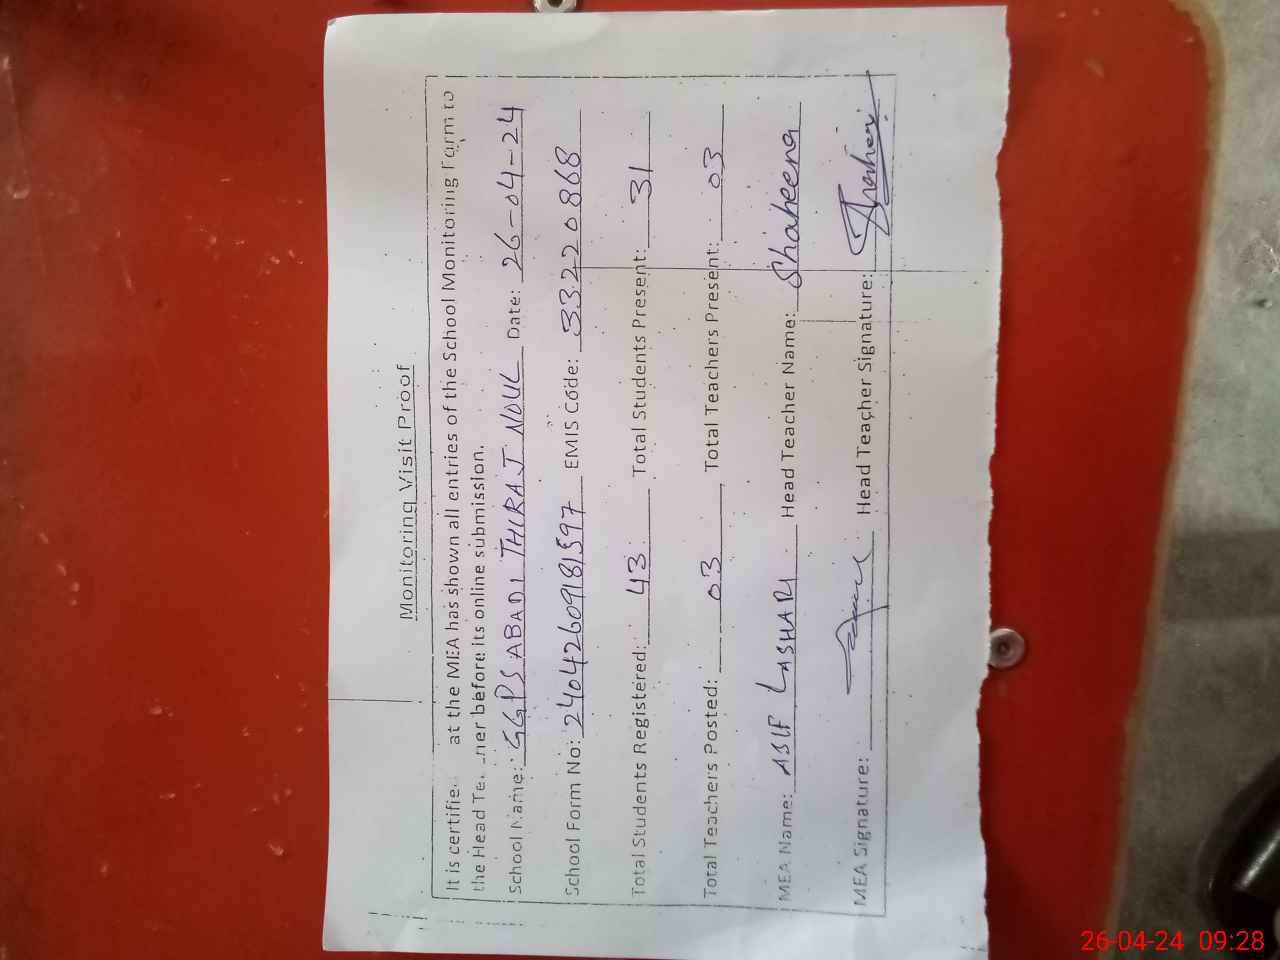 Monitoring Visit Proof
It is certifie at the MEA has shown all entries of the School Monitoring Form to
the Head Te ner before its online submission.
School Name: GGPS ABADI THIRAJ NOUL Date: 26-04-24
School Form No: 24042609181597 EMIS Code: 33220868
Total Students Registered: 43 Total Students Present: 31
Total Teachers Posted: 03 Total Teachers Present: 03
MEA Name: ASIF LASHARI Head Teacher Name: Shaheena
MEA Signature: Head Teacher Signature:
26-04-24 09:28